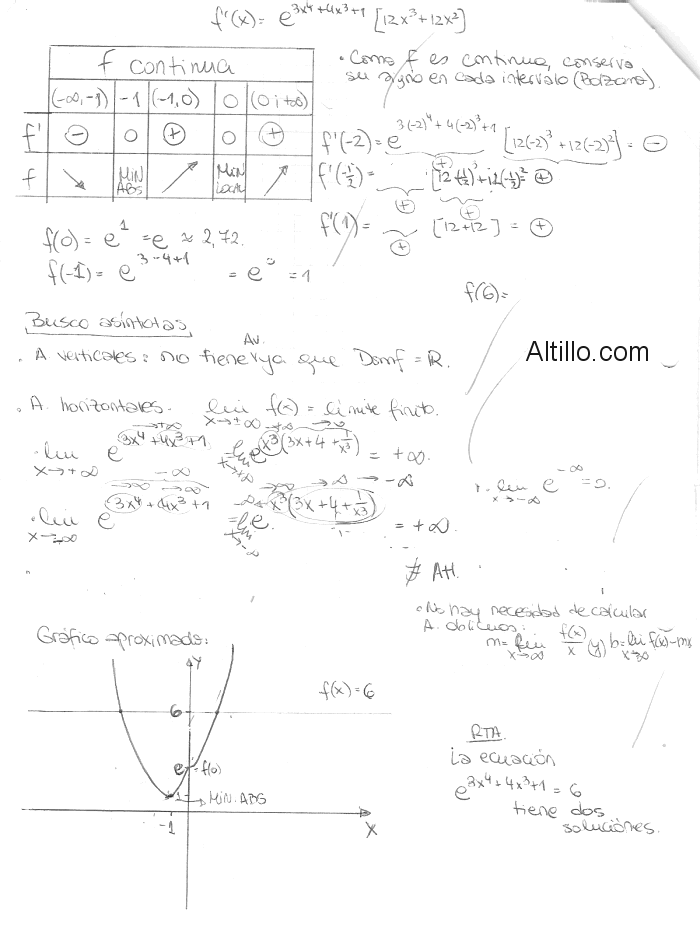 f'(x) = e^{3x⁴+4x³+1} [12x³+12x²]
f continua
(-∞,-1) -1 (-1,0) 0 (0;+∞)
f' ⊖ 0 ⊕ 0 ⊕
f ↘ MIN ABS ↗ MIN LOCAL ↗
• Como f es continua, conserva
su signo en cada intervalo (Bolzano).
f'(-2) = e^{3(-2)⁴+4(-2)³+1} [12(-2)³+12(-2)²] = ⊖
f'(-1/2) = ⊕ [12(-1/2)³+12(-1/2)²] = ⊕
⊕ ⊕
f'(1) = [12+12] = ⊕
⊕
f(0) = e¹ = e ≈ 2,72.
f(-1) = e^{3-4+1} = e⁰ = 1
f(6) =
Busco asíntotas
Altillo.com
• A verticales: no tiene AV. ya que Domf = ℝ.
• A. horizontales. lim x→±∞ f(x) = límite finito.
• lim x→+∞ e^{3x⁴+4x³+1} = lim x→+∞ e^{x³(3x+4+1/x³)} = +∞.
• lim x→-∞ e^{3x⁴+4x³+1} = lim x→-∞ e^{x³(3x+4+1/x³)} = +∞.
lim x→-∞ e^{-∞} = 0.
∄ AH.
• No hay necesidad de calcular
A. oblicuas:
m = lim x→∞ f(x)/x (y) b = lim x→∞ f(x) - mx
Gráfico aproximado:
Y
f(x) = 6
6
e = f(0)
1 → MIN. ABS
-1
X
RTA.
La ecuación
e^{3x⁴+4x³+1} = 6
tiene dos
soluciónes.